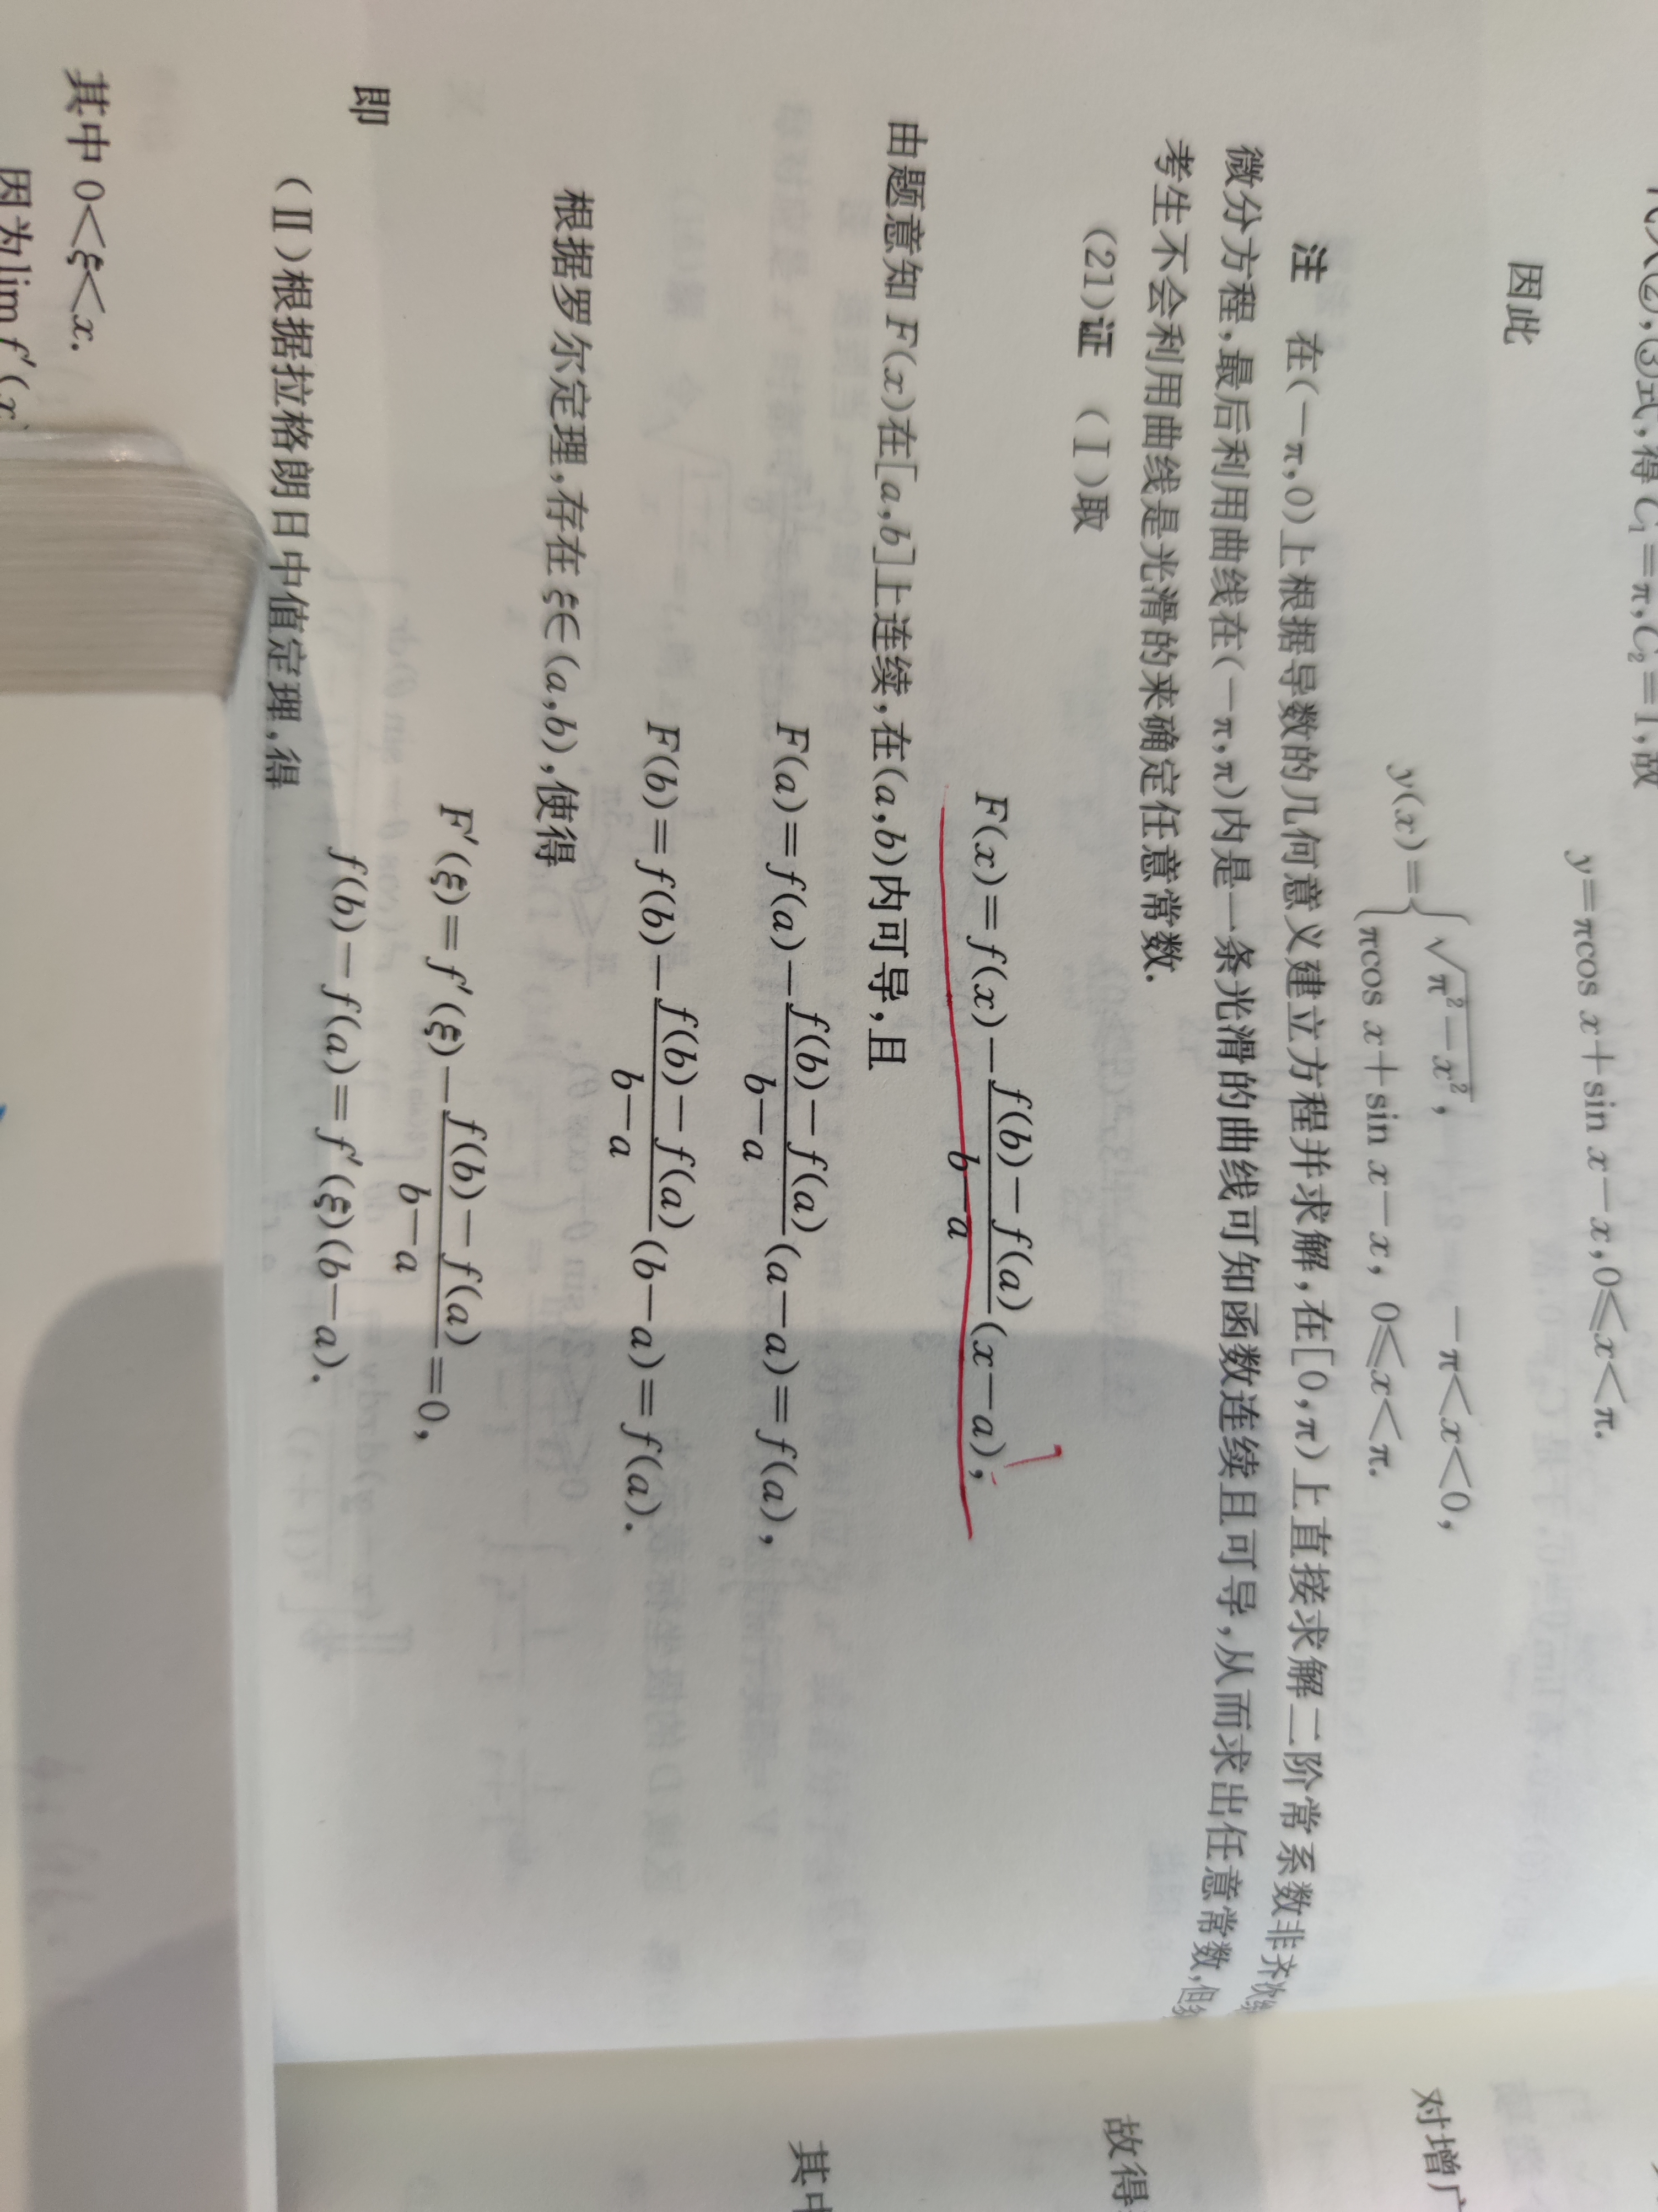 代入②,③式,得 C₁=π,C₂=1,故
y=πcos x+sin x-x,0≤x<π.
因此
y(x)={√(π²-x²), -π<x<0,
πcos x+sin x-x, 0≤x<π.
注 在(-π,0)上根据导数的几何意义建立方程并求解,在[0,π)上直接求解二阶常系数非齐次线
微分方程,最后利用曲线在(-π,π)内是一条光滑的曲线可知函数连续且可导,从而求出任意常数,但
考生不会利用曲线是光滑的来确定任意常数.
(21)证 (Ⅰ)取
F(x)=f(x)-\frac{f(b)-f(a)}{b-a}(x-a),
由题意知 F(x)在[a,b]上连续,在(a,b)内可导,且
F(a)=f(a)-\frac{f(b)-f(a)}{b-a}(a-a)=f(a),
F(b)=f(b)-\frac{f(b)-f(a)}{b-a}(b-a)=f(a).
根据罗尔定理,存在 ξ∈(a,b),使得
F′(ξ)=f′(ξ)-\frac{f(b)-f(a)}{b-a}=0,
即
f(b)-f(a)=f′(ξ)(b-a).
(Ⅱ)根据拉格朗日中值定理,得
其中 0<ξ<x.
因为lim f′(x)
对增广
故得
其中